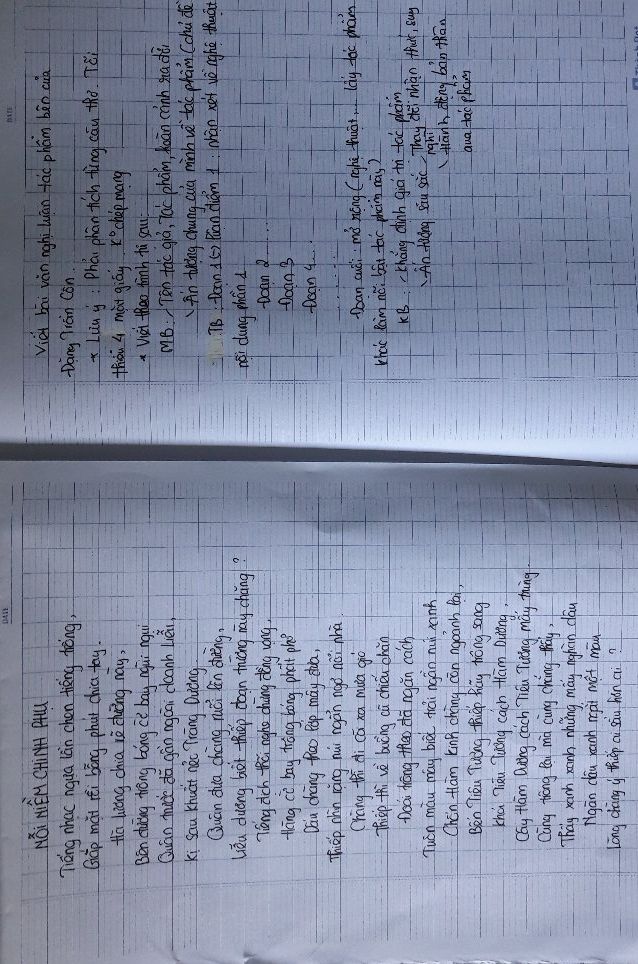 NỖI NIỀM CHINH PHỤ
Tiếng nhạc ngựa lần chen tiếng trống,
Giáp mặt rồi bỗng phút chia tay.
Hà lương chia rẽ đường này,
Bên đường trông bóng cờ bay ngùi ngùi
Quân trước đã gần ngoài doanh liễu,
Kị sau khuất nẻo Tràng Dương
Quân đưa chàng ruổi lên đường,
Liễu dương biết thiếp đoạn trường này chăng?
Tiếng địch thổi nghe chừng đồng vọng,
Hàng cờ bay trông bóng phất phơ
Dấu chàng theo lớp mây đưa,
Thiếp nhìn rặng núi ngẩn ngơ nỗi nhà.
Chàng thì đi cõi xa mưa gió
Thiếp thì về buồng cũ chiếu chăn
Đoái trông theo đã ngăn cách
Tuôn màu mây biếc trải ngần núi xanh
Chốn Hàm Kinh chàng còn ngoảnh lại,
Bến Tiêu Tương thiếp hãy trông sang
Khói Tiêu Tương cách Hàm Dương,
Cây Hàm Dương cách Tiêu Tương mấy trùng.
Cùng trông lại mà cùng chẳng thấy,
Thấy xanh xanh những mấy ngàn dâu
Ngàn dâu xanh ngắt một màu
Lòng chàng ý thiếp ai sầu hơn ai?
Viết bài văn nghị luận tác phẩm bên của
Đặng Trần Côn.
* Lưu ý: Phải phân tích từng câu thơ. Tối
thiểu 4 mặt giấy. K° chép mạng
* Viết theo trình tự sau:
MB: Tên tác giả, Tác phẩm, hoàn cảnh ra đời
Ấn tượng chung của mình về tác phẩm (chủ đề
TB: Đoạn 1 (=) luận điểm 1: nhận xét về nghệ thuật
nội dung phần 1
Đoạn 2
-Đoạn 3
-Đoạn 4....
-Đoạn cuối: mở rộng (nghệ thuật,... lấy tác phẩm
khác làm nổi bật tác phẩm này)
KB: Khẳng định giá trị tác phẩm
Ấn tượng sâu sắc Thay đổi nhận thức, suy
nghĩ
Hành động bản thân
qua tác phẩm